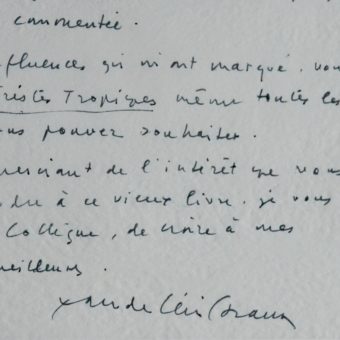 commentée.
fluences qui m'ont marqué, vou
ristes Tropiques même toutes les
us pouvez souhaiter.
erciant de l'intérêt que vous
dre à ce vieux livre, je vous
Collègue, de croire à mes
meilleurs.
Claude Lévi-Strauss